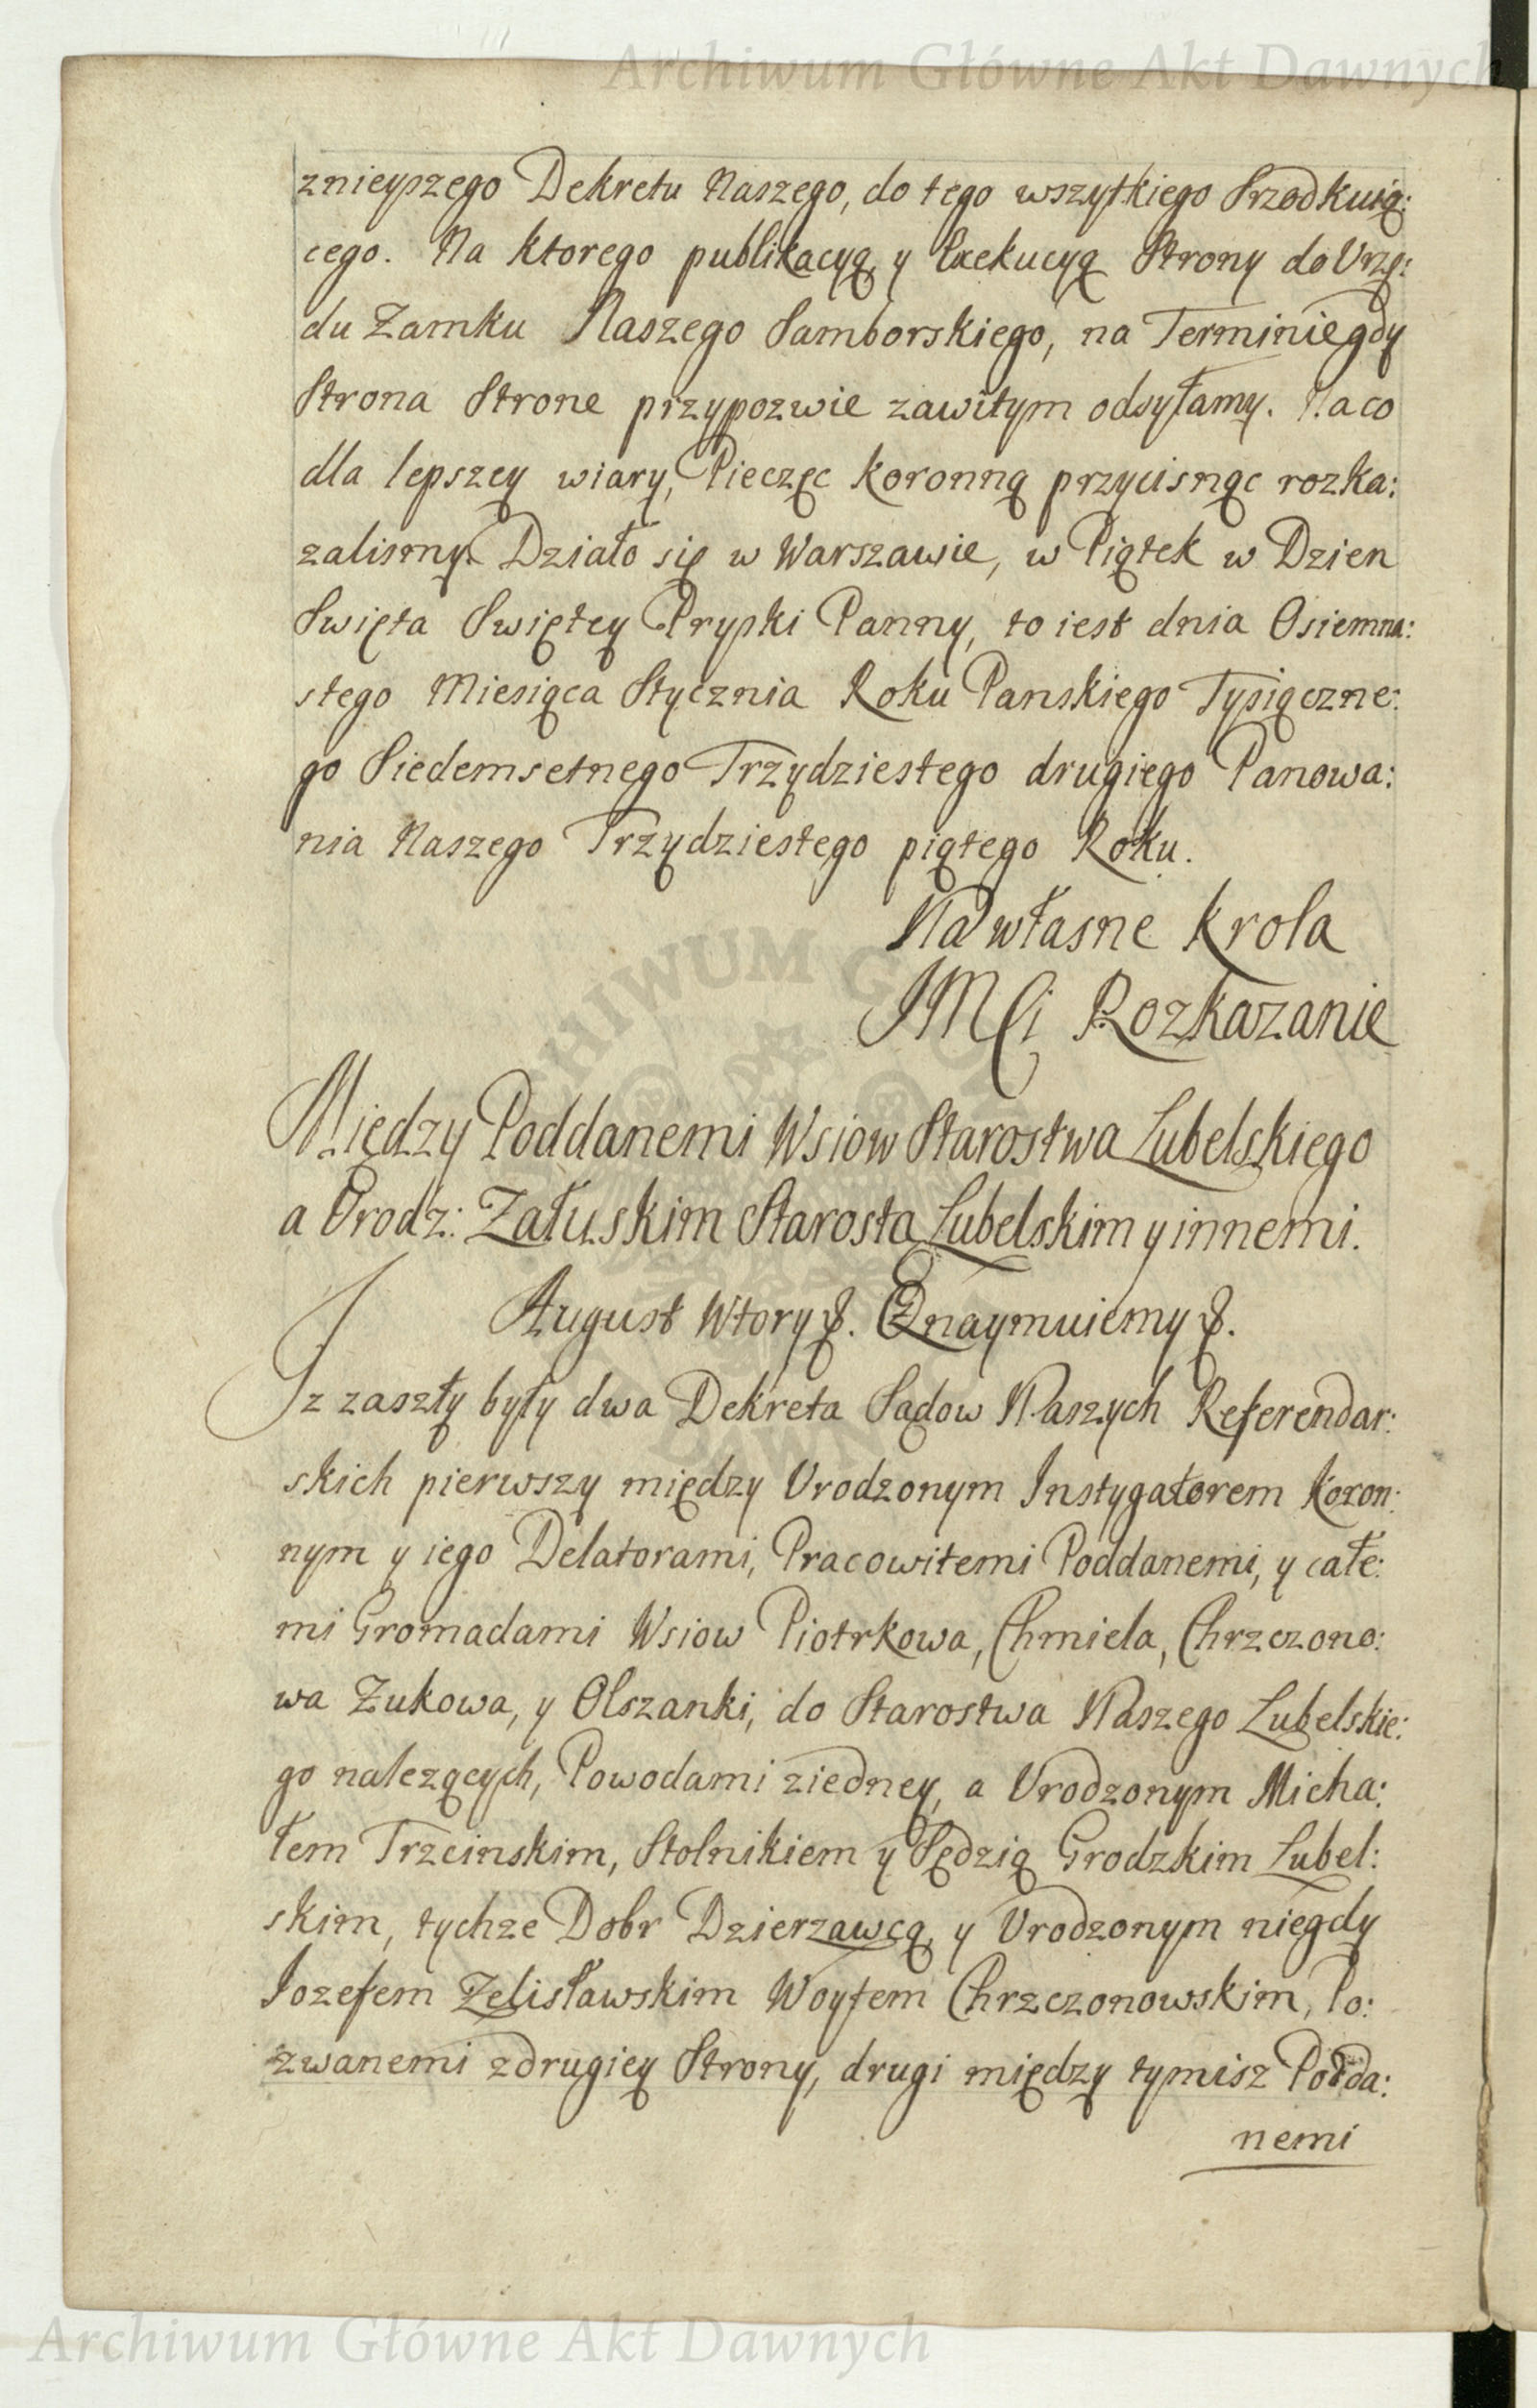 Archiwum Główne Akt Dawnych
znieyszego Dekretu Naszego, do tego wszytkiego Srzodkuią:
cego. Na ktorego publikacyą y Exekucyą Strony do Vrzę:
du Zamku Naszego Samborskiego, na Terminie gdy
Strona Strone przypozwie zawitym odsyłamy. Na co
dla lepszey wiary, Pieczęc Koronną przycisnąc rozka:
zalismy. Działo się w Warszawie, w Piątek w Dzien
Swięta Swiętey Pryski Panny, to iest dnia Osiemna:
stego Miesiąca Stycznia Roku Panskiego Tysiączne:
go Siedemsetnego Trzydziestego drugiego Panowa:
nia Naszego Trzydziestego piątego Roku.
Na własne Krola
JMCi Rozkazanie
Między Poddanemi Wsiow Starostwa Lubelskiego
a Vrodz: Załuskim Starostą Lubelskim y innemi.
August Wtory &. Oznaymuiemy &.
Iz zaszły były dwa Dekreta Sądow Naszych Referendar:
skich pierwszy między Vrodzonym Instygatorem Koron:
nym y iego Delatorami, Pracowitemi Poddanemi, y całe:
mi Gromadami Wsiow Piotrkowa, Chmiela, Chrzczono:
wa Zukowa, y Olszanki, do Starostwa Naszego Lubelskie:
go nalezących, Powodami ziedney, a Vrodzonym Micha:
łem Trzcinskim, Stolnikiem y Sędzią Grodzkim Lubel:
skim, tychze Dobr Dzierzawcą, y Vrodzonym niegdy
Iozefem Zelisławskim Woytem Chrzczonowskim, Po:
zwanemi zdrugiey Strony, drugi między tymisz Podda:
nemi
Archiwum Główne Akt Dawnych